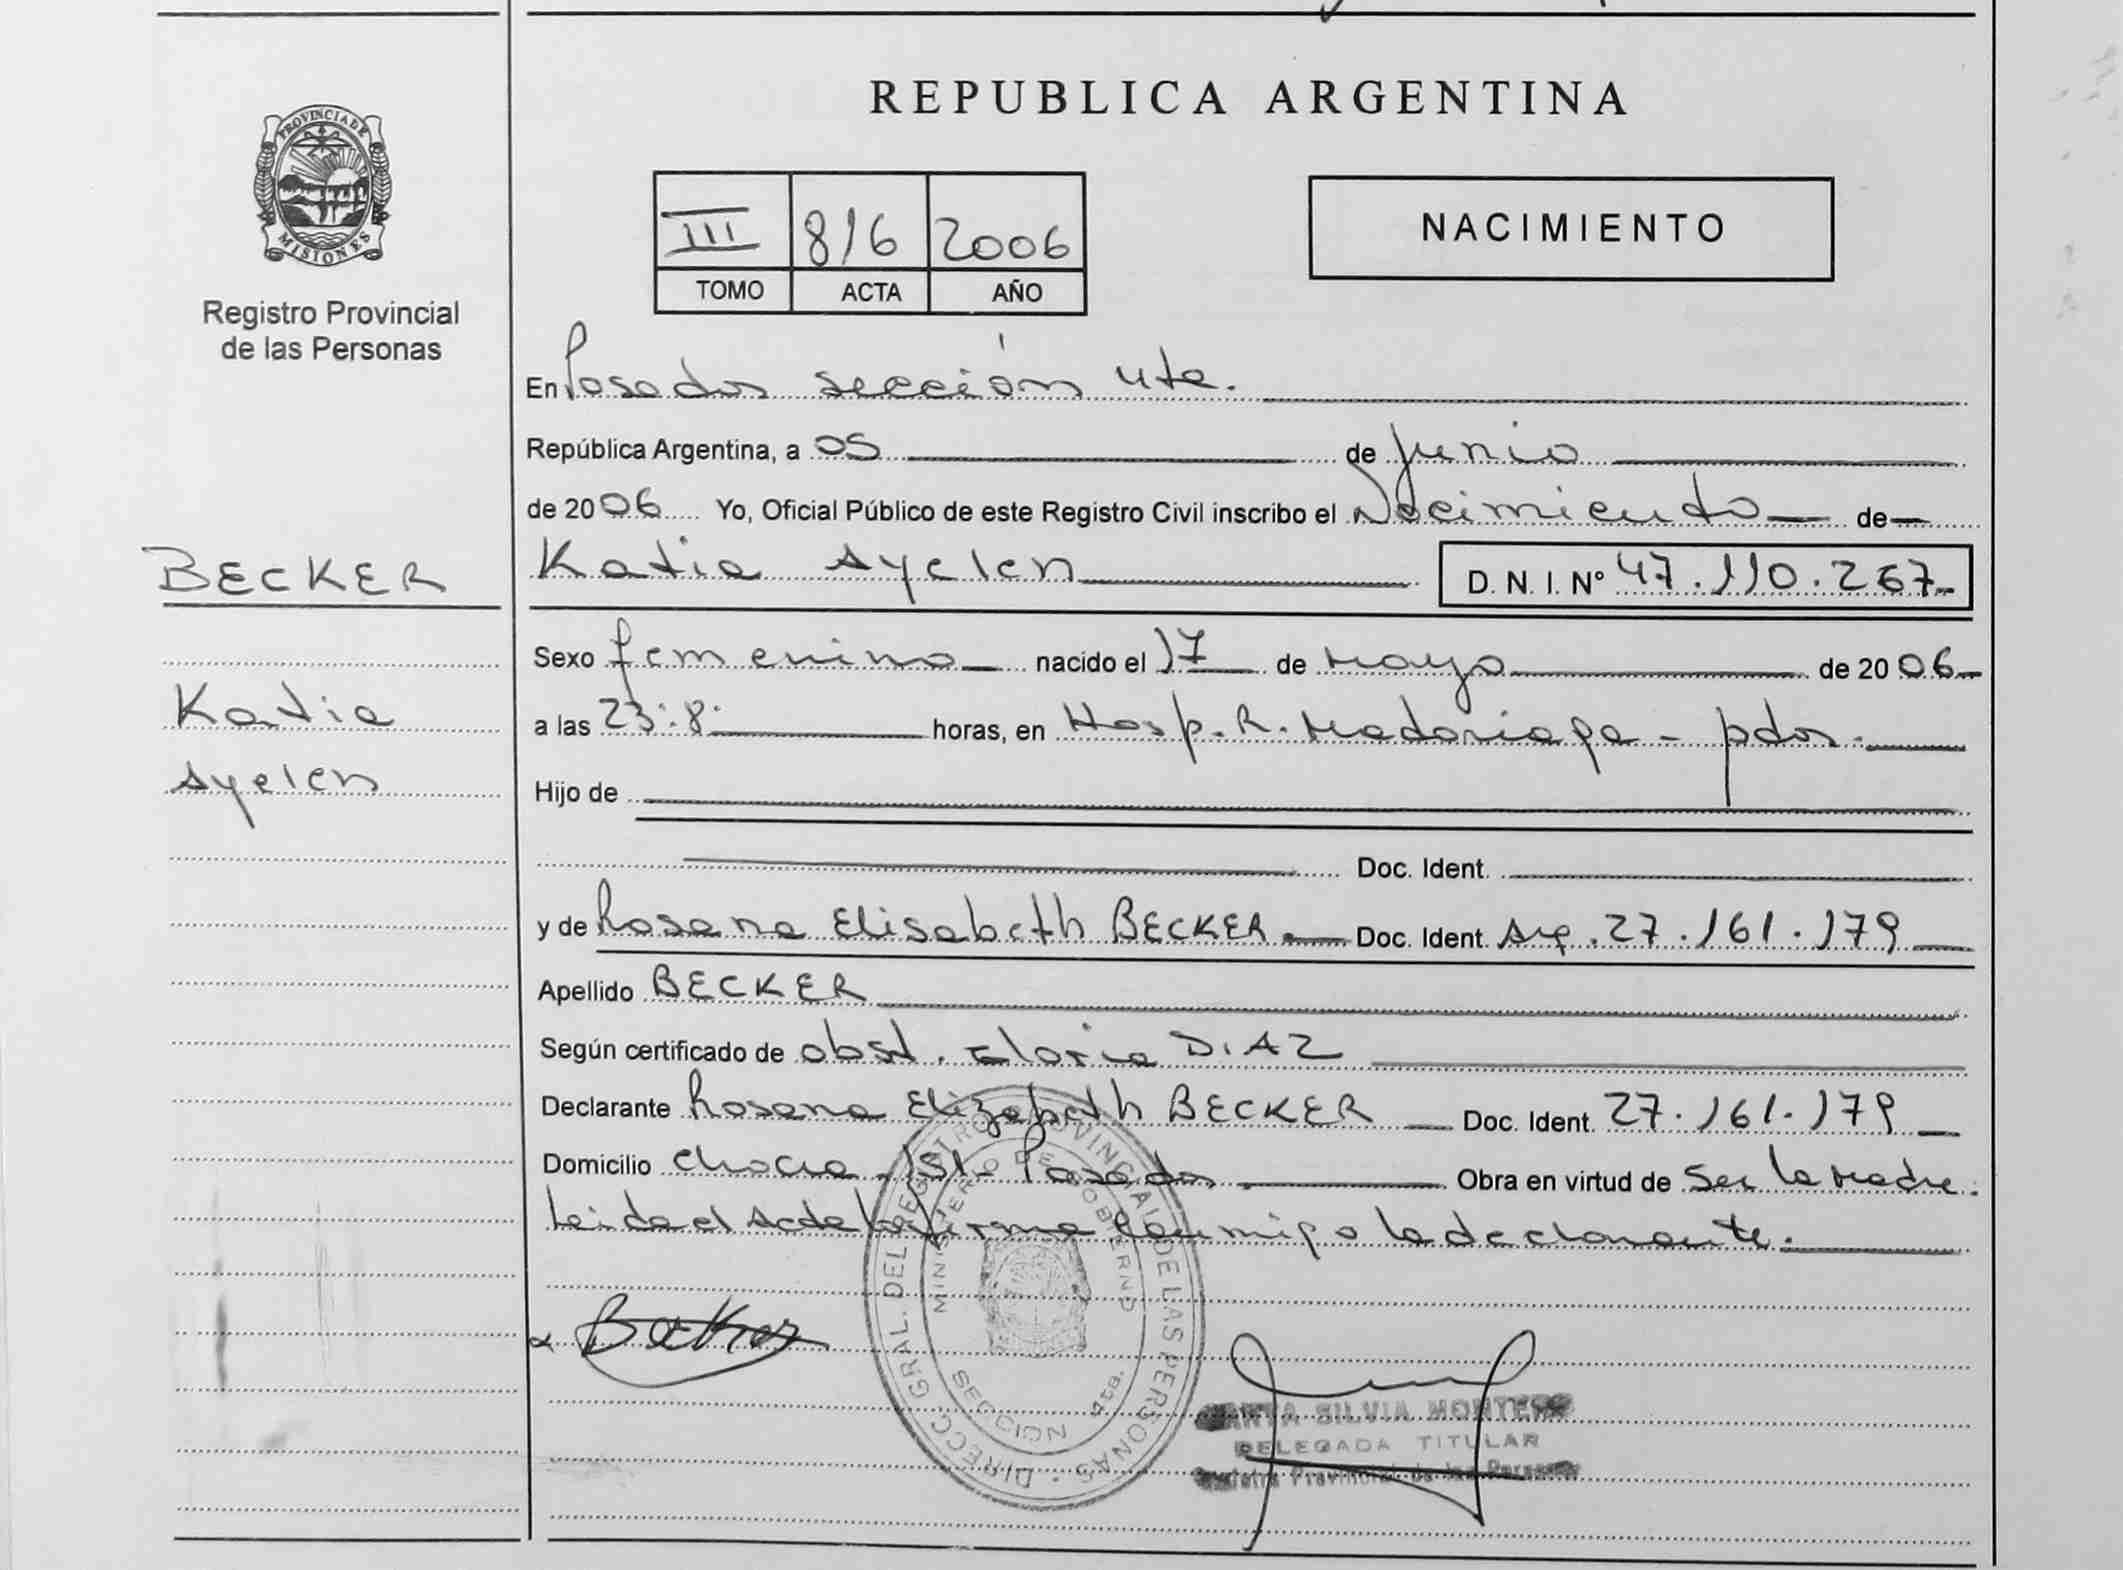 REPUBLICA ARGENTINA
PROVINCIA DE
MISIONES
Registro Provincial
de las Personas
III 816 2006
TOMO ACTA AÑO
NACIMIENTO
En Posadas sección 4ta.
República Argentina, a 05 de Junio
de 2006 Yo, Oficial Público de este Registro Civil inscribo el Nacimiento de
BECKER
Katia Ayelen D. N. I. Nº 47.110.267
Sexo femenino nacido el 17 de Mayo de 2006
Katia
Ayelen
a las 23:8 horas, en Hosp. R. Madariaga - pdas.
Hijo de
Doc. Ident.
y de Rosana Elisabeth BECKER Doc. Ident. Arg. 27.161.179
Apellido BECKER
Según certificado de obst. Gloria DIAZ
Declarante Rosana Elizabeth BECKER Doc. Ident. 27.161.179
Domicilio 151 Posadas Obra en virtud de ser la Madre.
Leida el Acta la firma conmigo la declarante.
Becker
DIRECC. GRAL. DEL REGISTRO PROVINCIAL DE LAS PERSONAS
MINISTERIO DE GOBIERNO
SECCION 4ta.
SILVIA MONTERO
DELEGADA TITULAR
Registro Provincial de las Personas